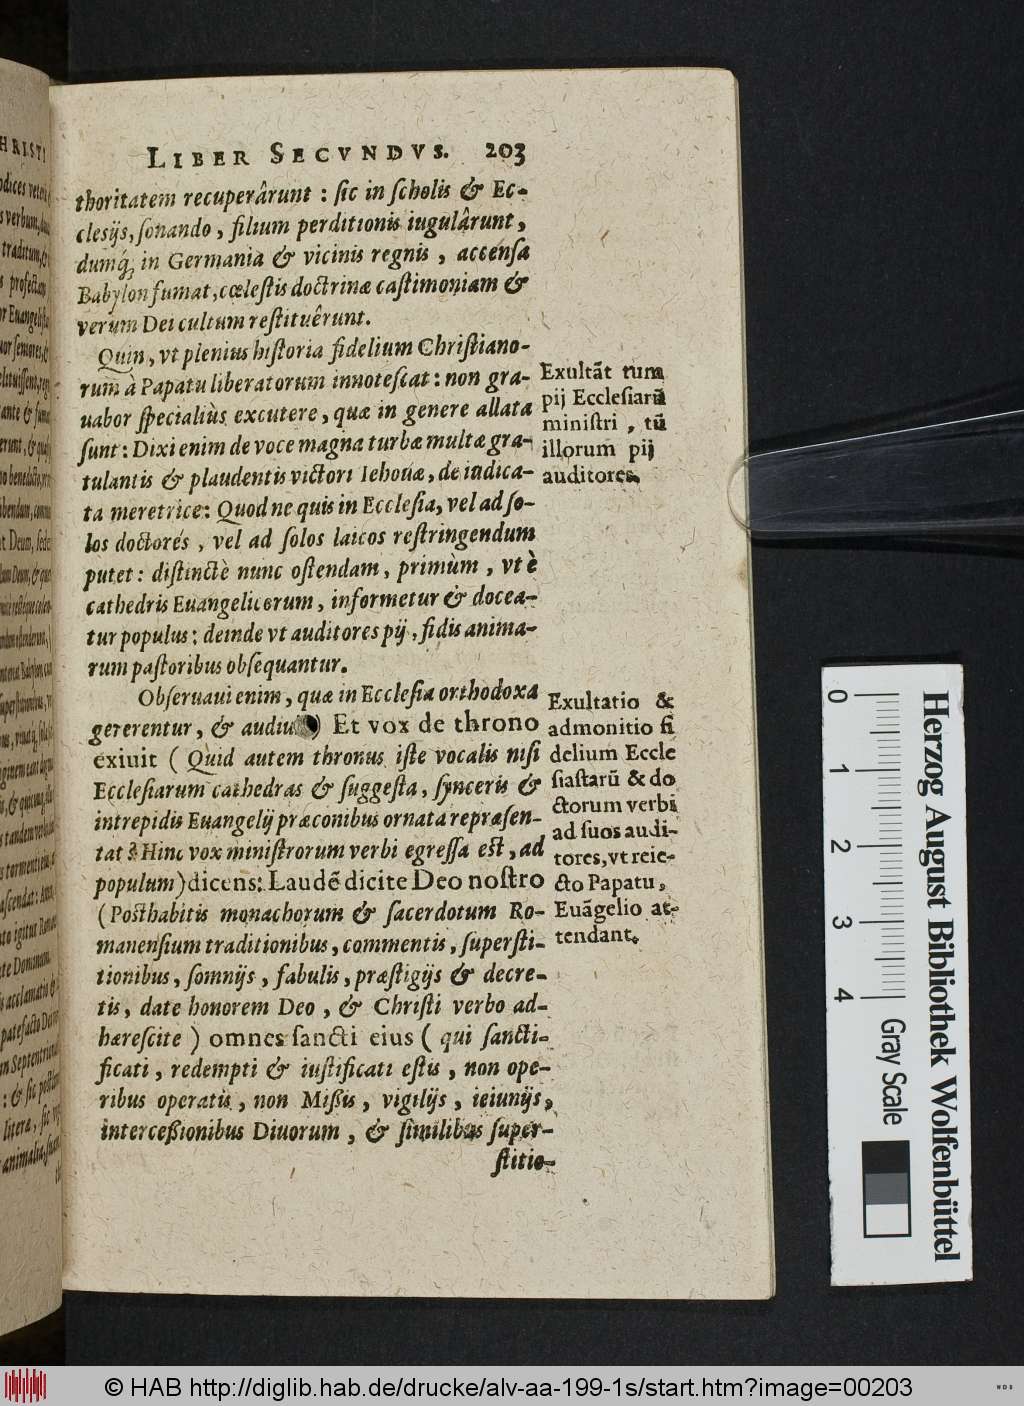 LIBER SECVNDVS. 203
thoritatem recuperârunt : ſic in ſcholis & Ec-
cleſijs, ſonando, filium perditionis iugulârunt,
dumq́; in Germania & vicinis regnis, accenſa
Babylon fumat, cœleſtis doctrinæ caſtimoniam &
verum Dei cultum reſtituêrunt.
Quin, vt plenius hiſtoria fidelium Chriſtiano-
rum à Papatu liberatorum innoteſcat: non gra-
uabor ſpecialiùs excutere, quæ in genere allata
ſunt: Dixi enim de voce magna turbæ multæ gra-
tulantis & plaudentis victori Iehouæ, de iudica-
ta meretrice: Quod ne quis in Eccleſia, vel ad ſo-
los doctores, vel ad ſolos laicos reſtringendum
putet: diſtinctè nunc oſtendam, primùm, vt è
cathedris Euangelicorum, informetur & docea-
tur populus: deinde vt auditores pij, fidis anima-
rum paſtoribus obſequantur.
Exultāt tum
pij Eccleſiarū
miniſtri, tū
illorum pij
auditores.
Obſeruaui enim, quæ in Eccleſia orthodoxa
gererentur, & audiui) Et vox de throno
exiuit ( Quid autem thronus iſte vocalis niſi
Eccleſiarum cathedras & ſuggeſta, ſynceris &
intrepidis Euangelij præconibus ornata repræſen-
tat? Hinc vox miniſtrorum verbi egreſſa eſt, ad
populum) dicens: Laudē dicite Deo noſtro
(Poſthabitis monachorum & ſacerdotum Ro-
manenſium traditionibus, commentis, ſuperſti-
tionibus, ſomnijs, fabulis, præſtigijs & decre-
tis, date honorem Deo, & Chriſti verbo ad-
hæreſcite ) omnes ſancti eius ( qui ſancti-
ficati, redempti & iuſtificati eſtis, non ope-
ribus operatis, non Mißis, vigilijs, ieiunijs,
interceßionibus Diuorum, & ſimilibus ſuper-
ſtitio-
Exultatio &
admonitio fi
delium Eccle
ſiaſtarū & do
ctorum verbi
ad ſuos audi-
tores, vt reie-
cto Papatu,
Euāgelio at-
tendant.
0 1 2 3 4 Gray Scale
Herzog August Bibliothek Wolfenbüttel
© HAB http://diglib.hab.de/drucke/alv-aa-199-1s/start.htm?image=00203